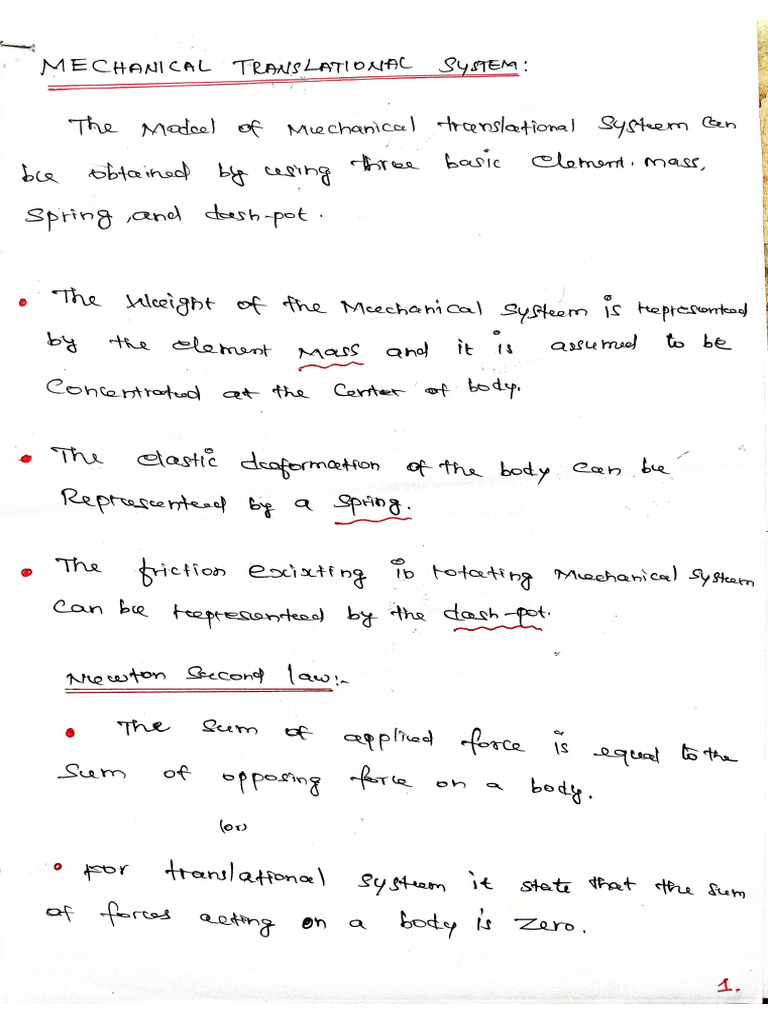 MECHANICAL TRANSLATIONAL SYSTEM:
The Model of Mechanical translational System can
be obtained by using three basic element. mass,
Spring, and dash-pot.
• The Weight of the Mechanical System is represented
by the element Mass and it is assumed to be
Concentrated at the Center of body.
• The elastic deformation of the body can be
Represented by a Spring.
• The friction existing in rotating Mechanical System
can be represented by the dash-pot.
Newton Second law:-
• The Sum of applied force is equal to the
Sum of opposing force on a body.
(or)
• For translational System it state that the Sum
of forces acting on a body is Zero.
1.